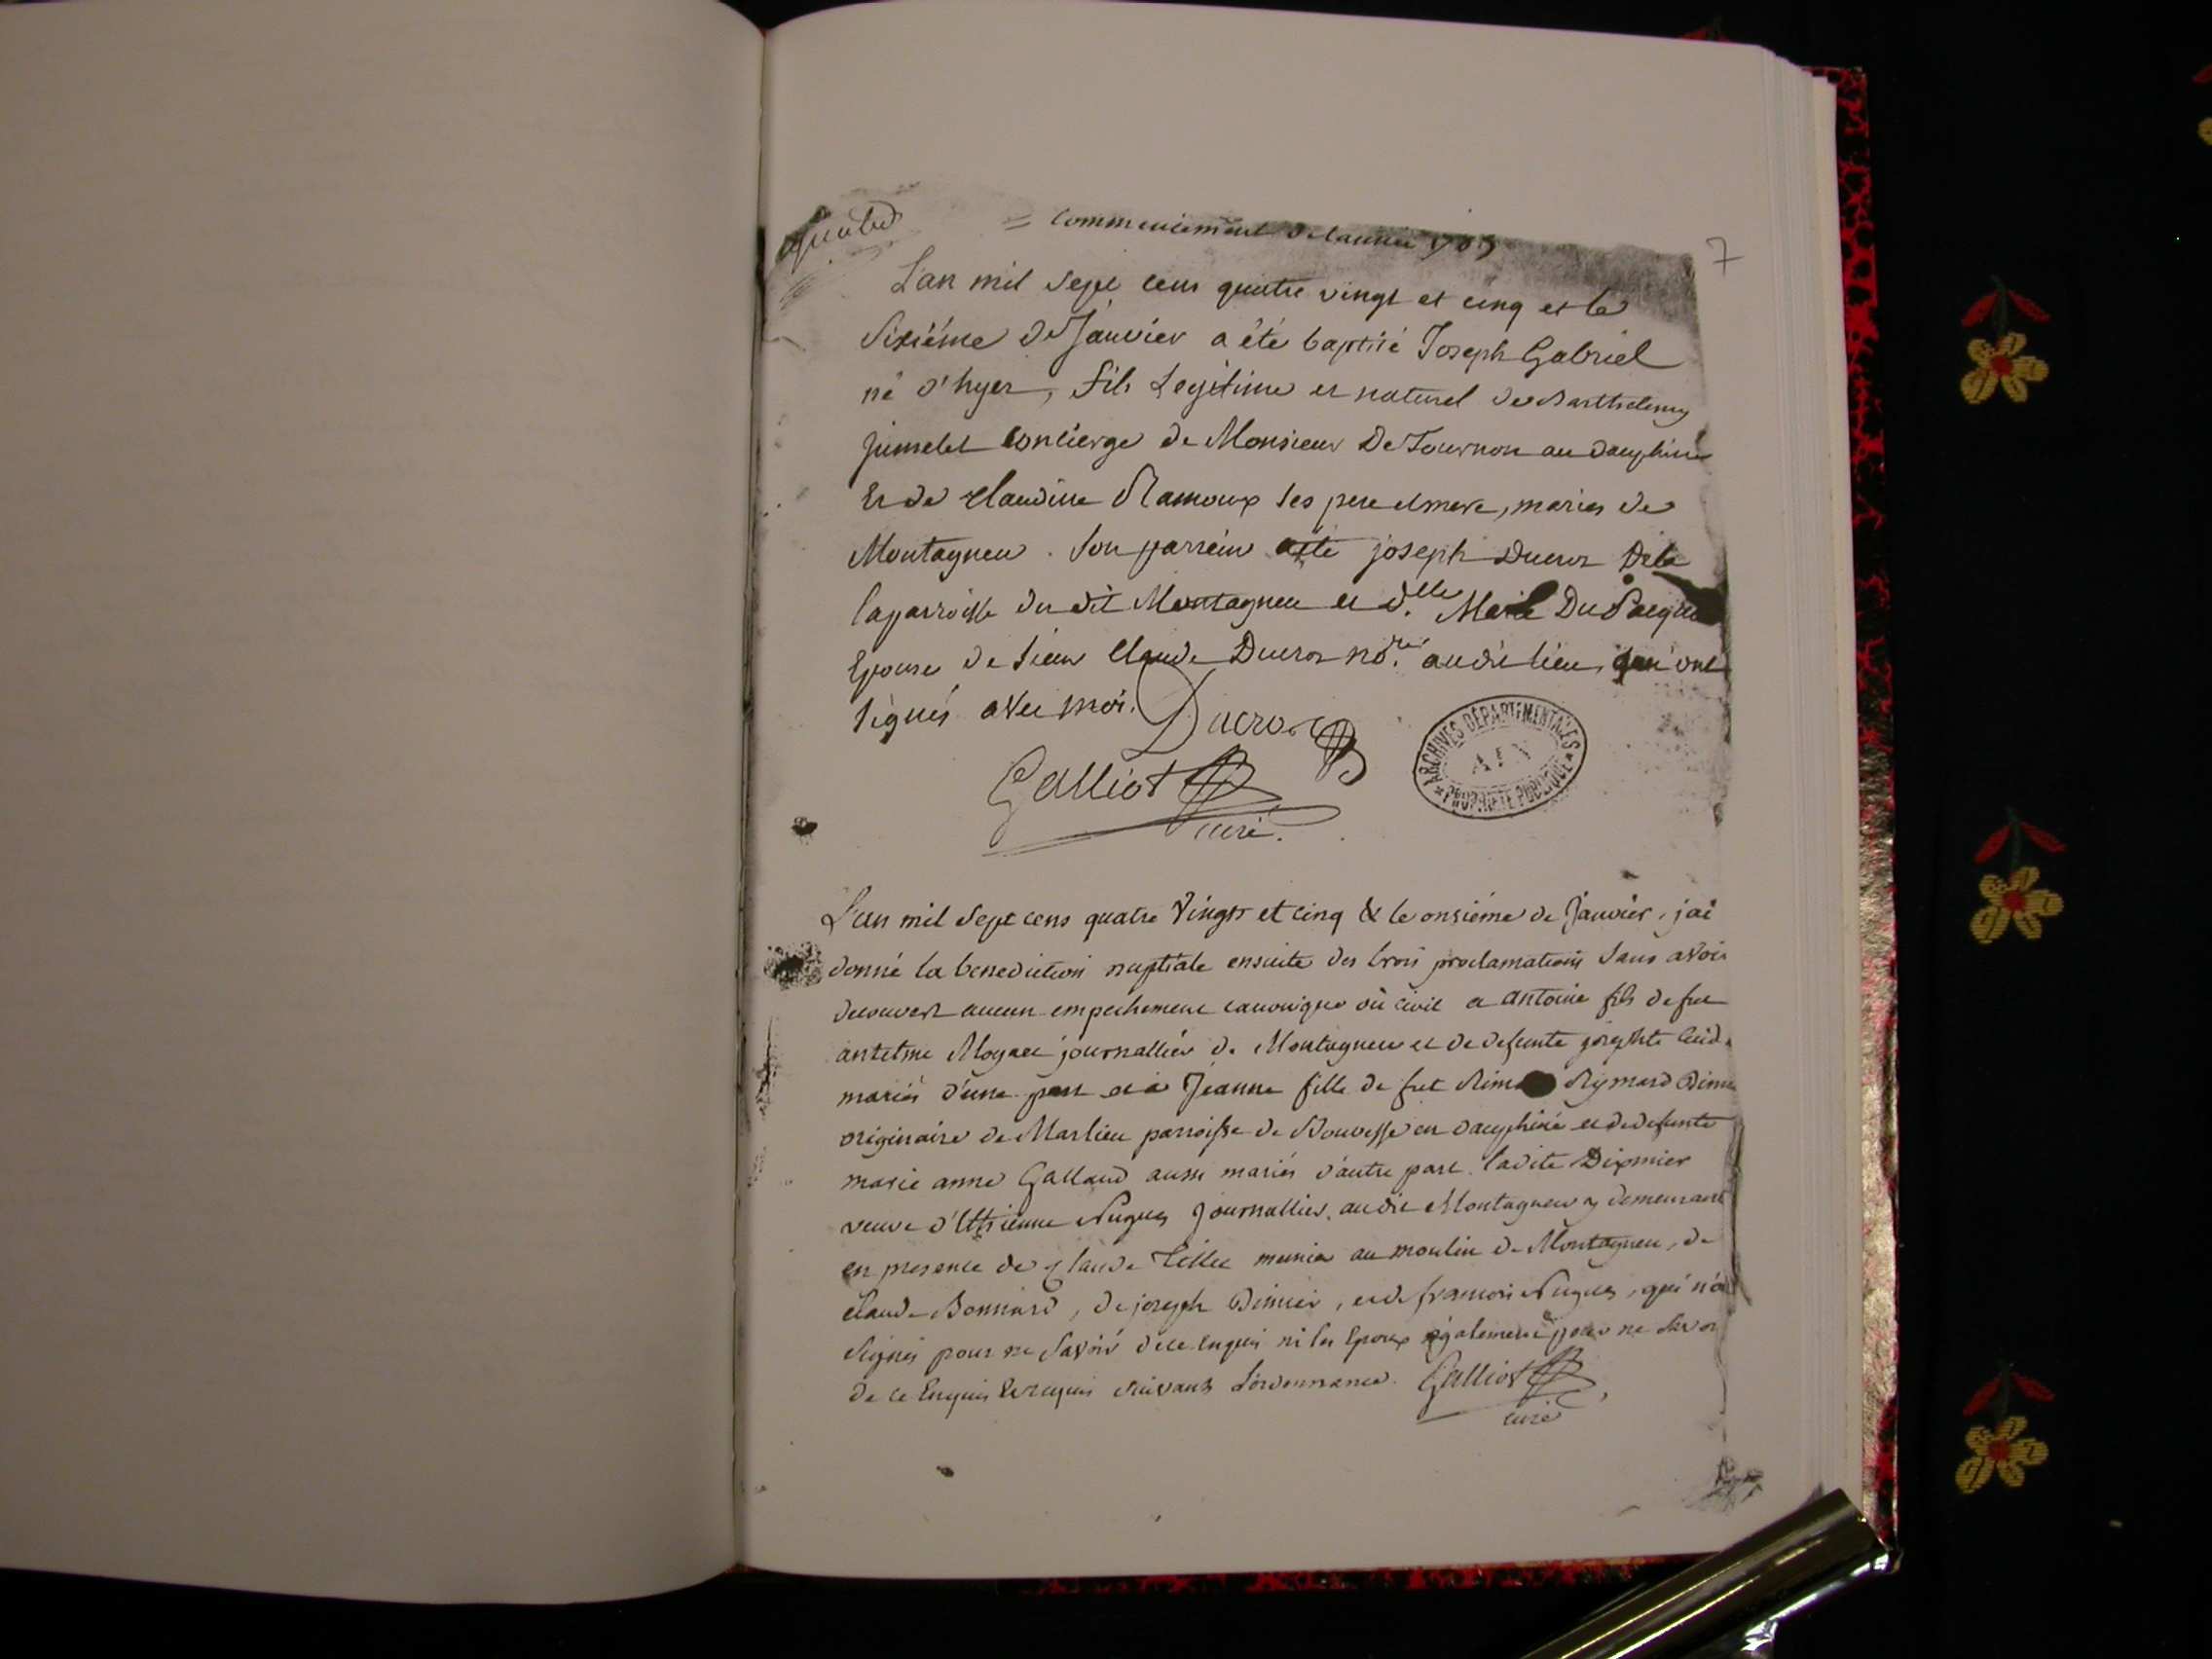 = commencement de l'année 1785
7
L'an mil sept cens quatre vingt et cinq et le
sixiéme de Janvier a été baptisé Joseph Gabriel
né d'hyer, fils Legitime et naturel de Barthelemy
Jumelet concierge de Monsieur De Tournon au dauphiné
Et de Claudine Ramoux ses pere et mere, mariés de
Montagneu. Son parrein a été joseph Ducros De la
la parroisse du dit Montagneu et d.lle Marie Du
Epouse de sieur Claude Ducros no.re au dit lieu, qui ont
signés avec moi. Ducros
Galliot
curé.
ARCHIVES DÉPARTEMENTALES
AIN
PROPRIÉTÉ PUBLIQUE
L'an mil sept cens quatre vingts et cinq & le onsiéme de Janvier, j'ai
donné la benediction nuptiale ensuite des trois proclamations sans avoir
decouvert aucun empechement canonique où civil a antoine fils de feu
antelme Moyret journallier de Montagneu et de defunte
mariés d'une part et à Jeanne fille de feu Rymard
originaire de Marlieu parroisse de Bouvesse en dauphiné et de defunte
marie anne Galland aussi mariés d'autre part. ladite Dixmier
veuve d'Etienne Nugues Journallier au dit Montagneu y demeurant
en presence de Claude Tillet munier au moulin de Montagneu, de
claude Bonnard, de joseph Dimier, et de francois Nugues, qui n'ont
signés pour ne savoir de ce enquis ni les Epoux également pour ne savoir
de ce Enquis et requis suivant L'ordonnance. Galliot
curé